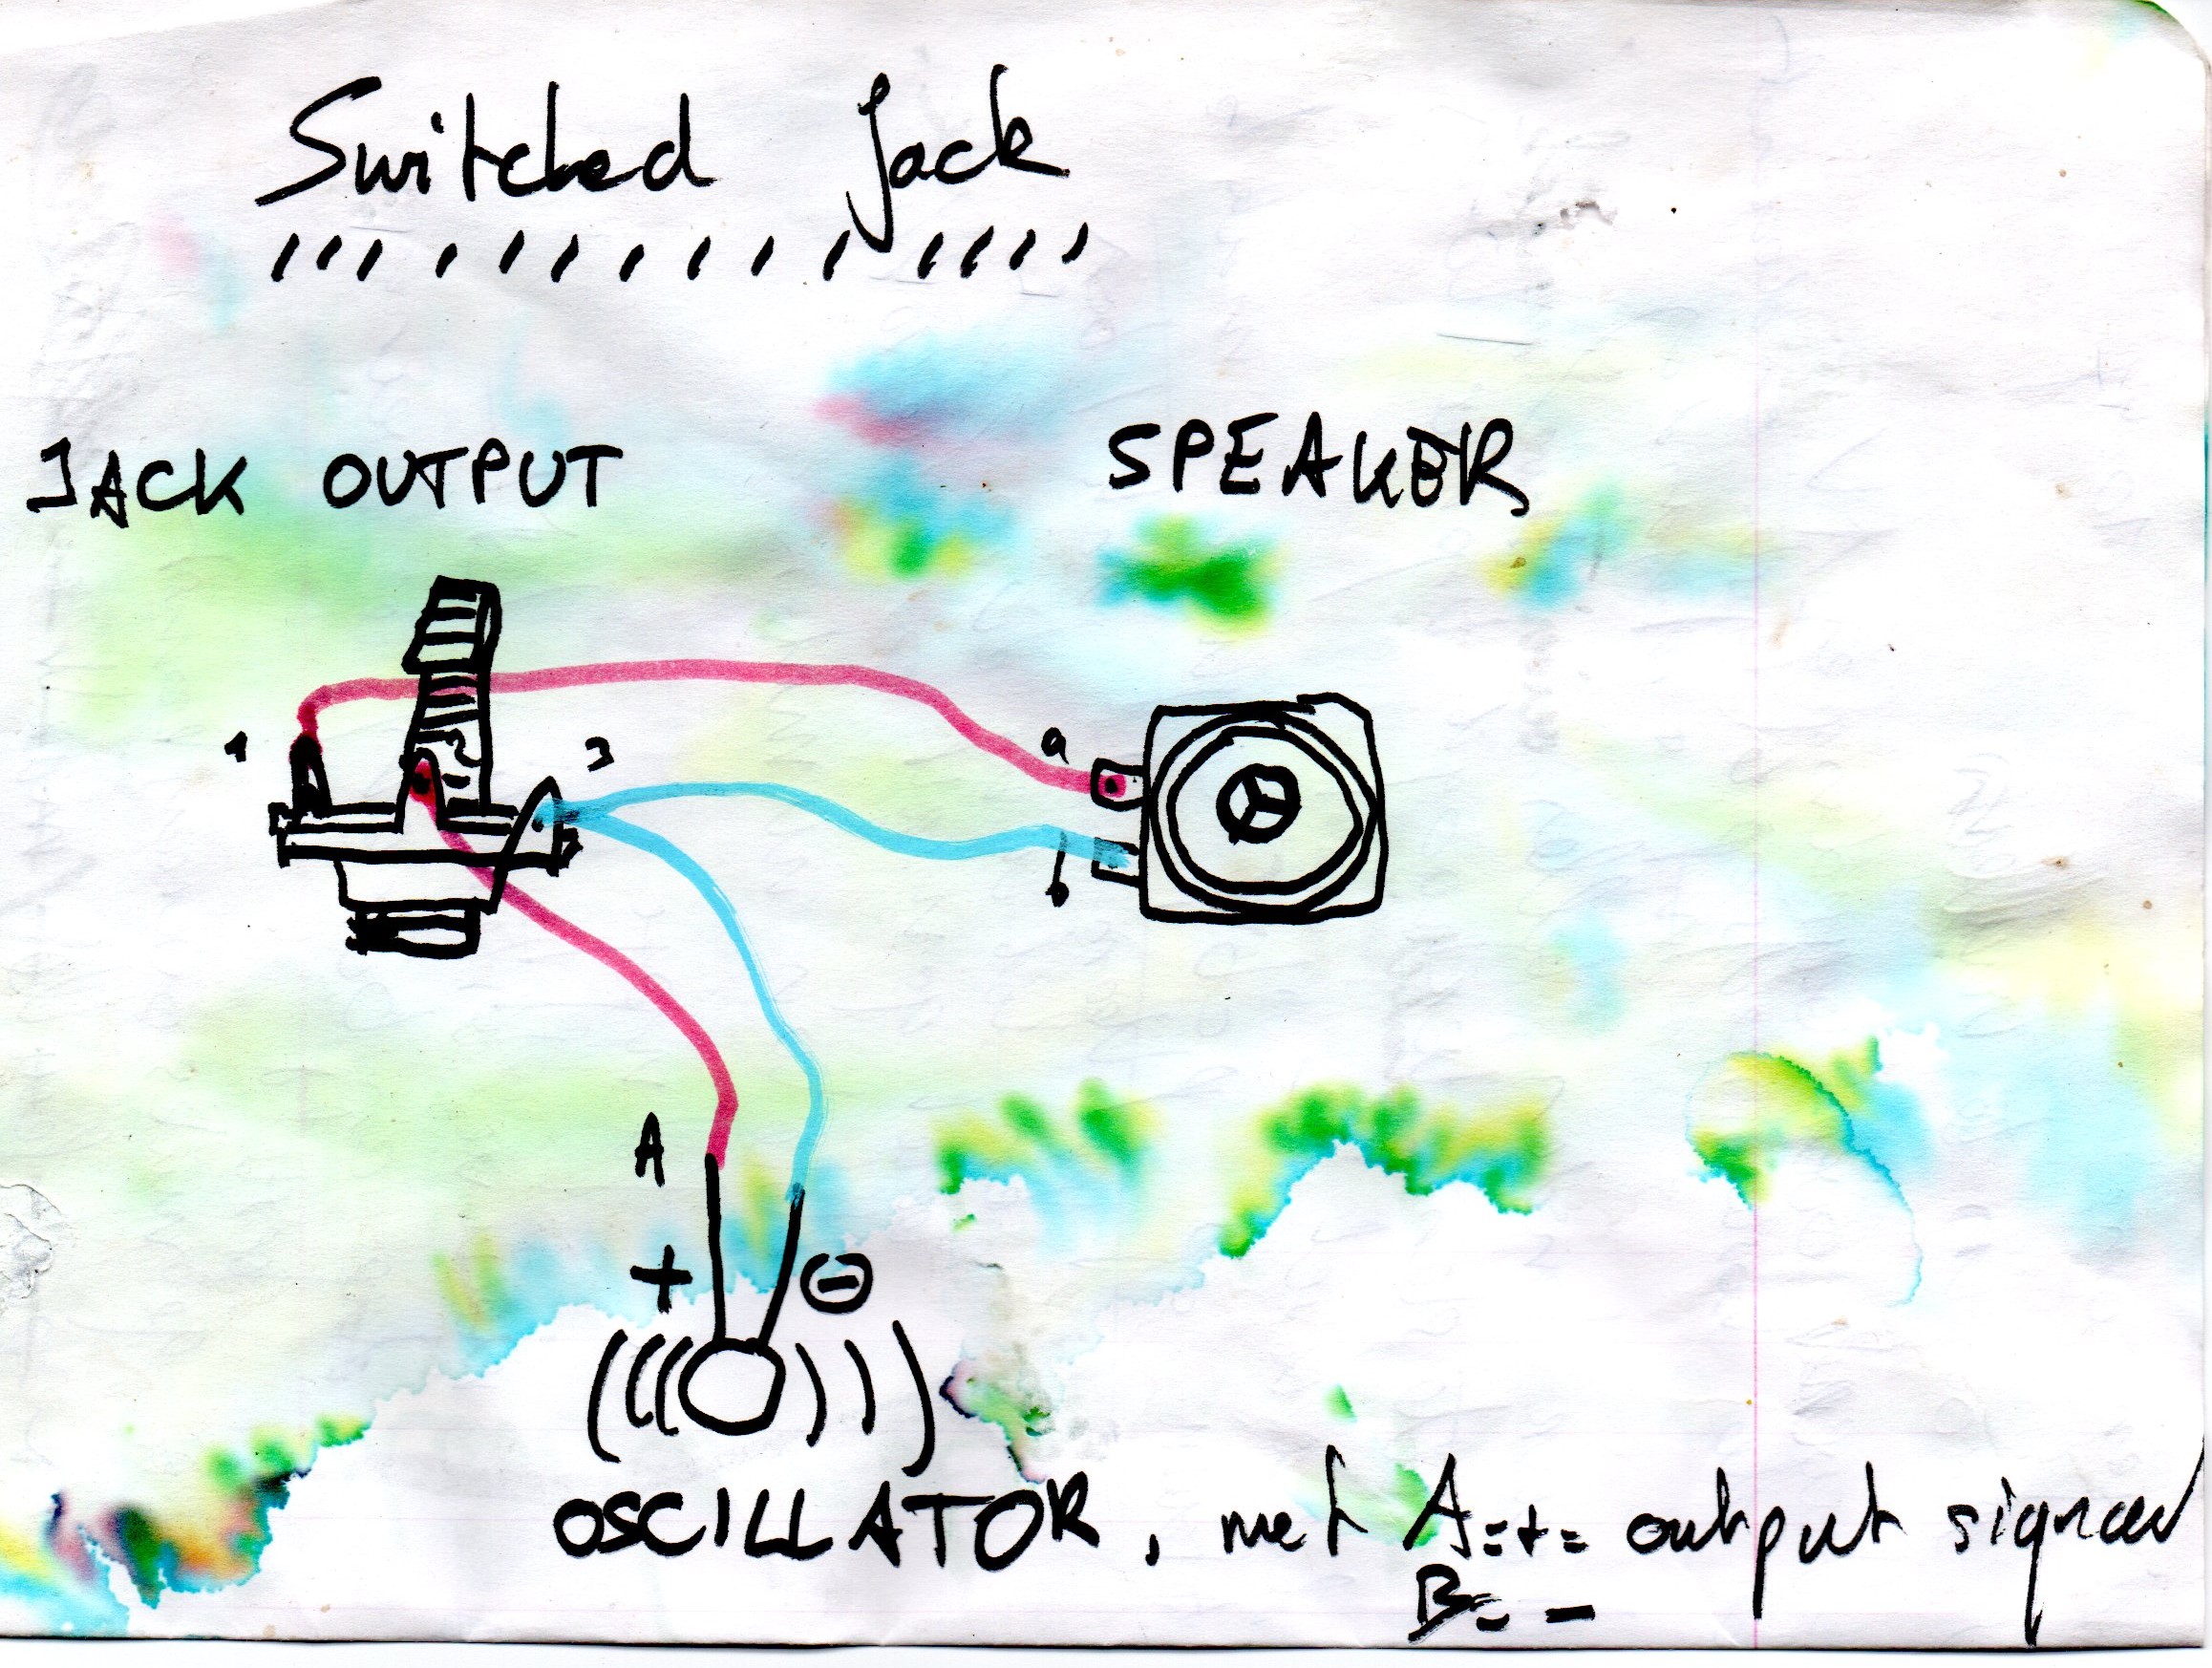 Switched Jack
JACK OUTPUT
SPEAKER
1
2
3
a
b
A
+
-
OSCILLATOR, met A=+= output signaal
B= -